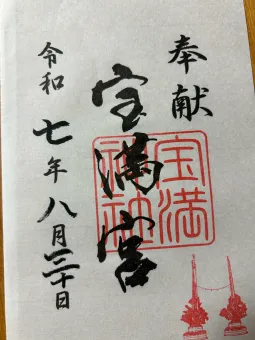 奉献
宝満宮
宝満
神社
令和七年八月三十日